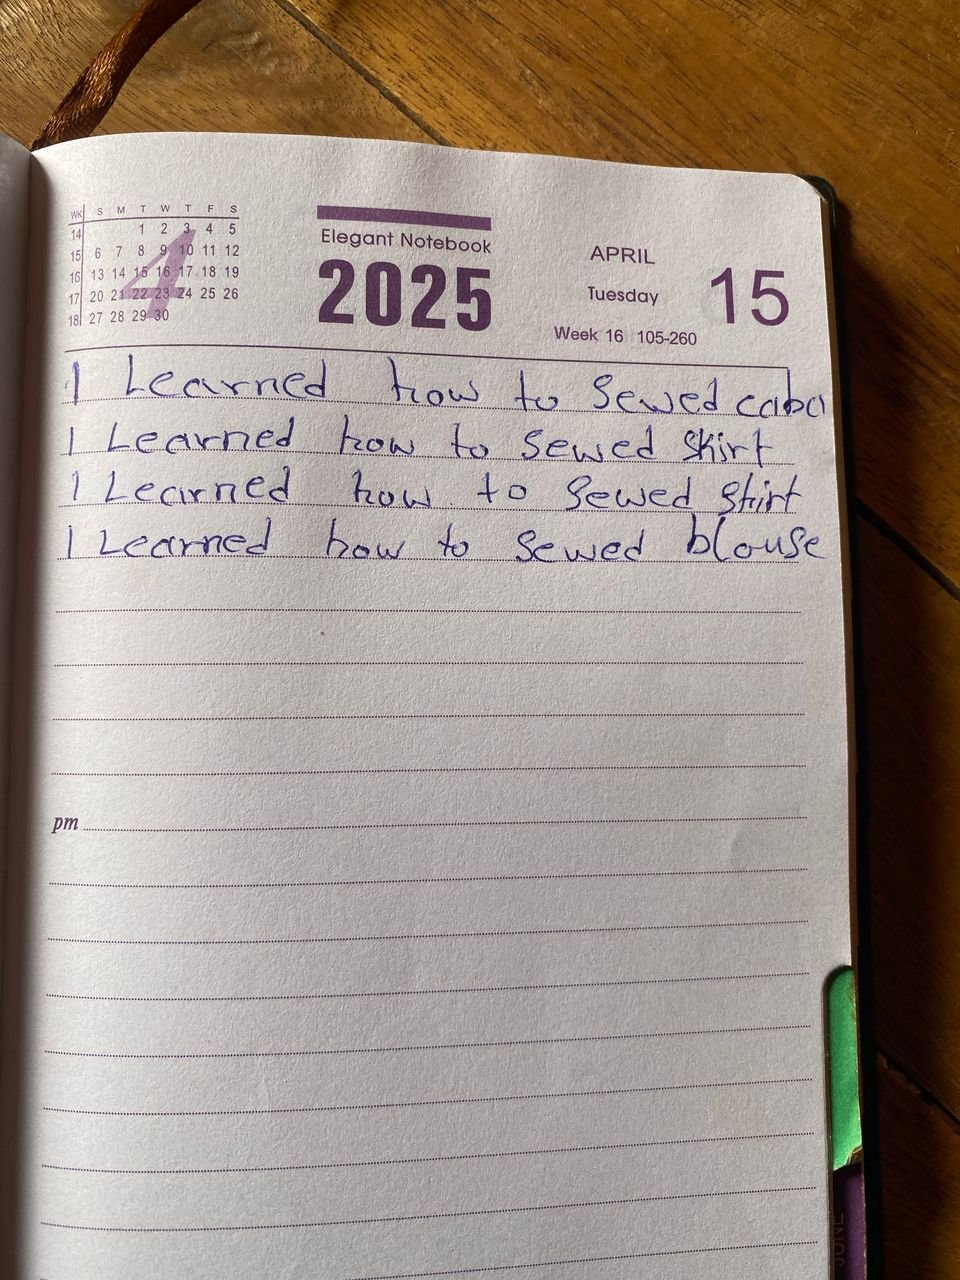 WK S M T W T F S
14 1 2 3 4 5
15 6 7 8 9 10 11 12
16 13 14 15 16 17 18 19
17 20 21 22 23 24 25 26
18 27 28 29 30
4
Elegant Notebook
2025
APRIL
Tuesday
15
Week 16 105-260
I Learned how to Sewed caba
I Learned how to sewed skirt
I Learned how to sewed shirt
I Learned how to sewed blouse
pm
JUNE